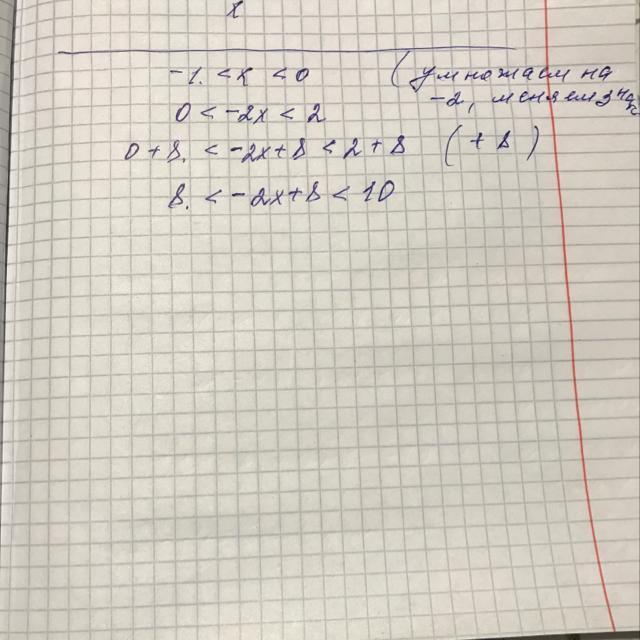 x
-1. < x < 0 (умножаем на
-2, меняем знак
0 < -2x < 2
0 + 8. < -2x + 8 < 2 + 8 (+ 8)
8. < -2x + 8 < 10